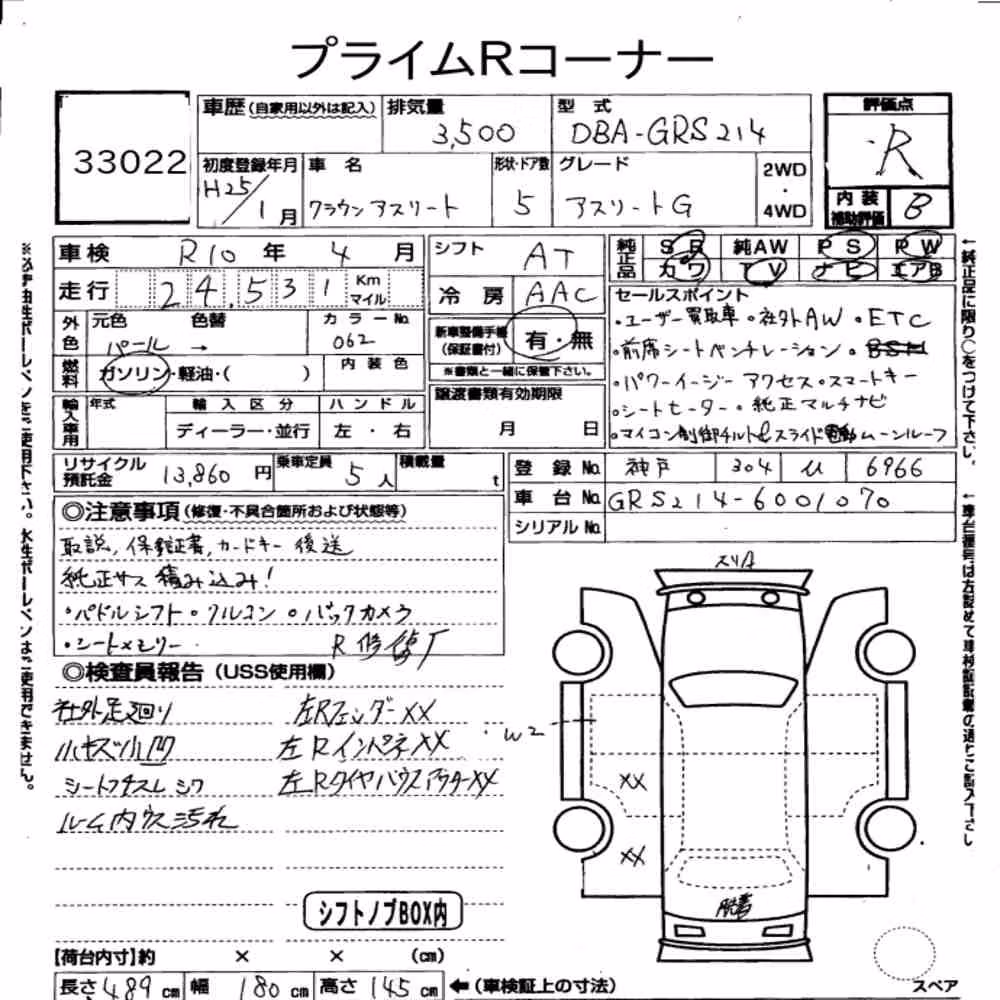 プライムRコーナー
33022
車歴(自家用以外は記入) 排気量 3,500 型式 DBA-GRS214
評価点 R
内装補助評価 B
初度登録年月 H25/1月 車名 クラウン アスリート 形状・ドア数 5 グレード アスリートG 2WD・4WD
車検 R10年 4月
走行 24,531 Km マイル
シフト AT
冷房 AAC
純正品 SR 純AW PS PW
カワ TV ナビ エアB
外色 元色 パール 色替 → カラーNo. 062
燃料 ガソリン・軽油・( ) 内装色
新車整備手帳(保証書付) 有・無
※書類と一緒に保管下さい。
輸入車用 年式 輸入区分 ディーラー・並行 ハンドル 左・右
譲渡書類有効期限 月 日
セールスポイント
・ユーザー買取車・社外AW・ETC
・前席シートベンチレーション・BSM
・パワーイージー アクセス・スマートキー
・シートヒーター・純正マルチナビ
・マイコン制御チルト&スライド電動ムーンルーフ
リサイクル預託金 13,860円 乗車定員 5人 積載量 t
登録No. 神戸 304 6966
車台No. GRS214-6001070
シリアルNo.
◎注意事項(修復・不具合箇所および状態等)
取説,保証書,カードキー 後送
純正サス 積み込み!
・パドルシフト・クルコン・バックカメラ
・シートメモリー
R修
◎検査員報告(USS使用欄)
社外足廻り 左Rフェンダー XX
小キズ小凹 左Rインパネ XX
シートスレ シワ 左RタイヤハウスアウターXX
ルーム内ウス汚れ
シフトノブBOX内
スリA
W2
XX
XX
【荷台内寸】約 × × (cm)
長さ 489 cm 幅 180 cm 高さ 145 cm ←(車検証上の寸法)
スペア
※必ず油性ボールペンをご使用下さい。水性ボールペンはご使用できません。
←純正品に限り○をつけて下さい。